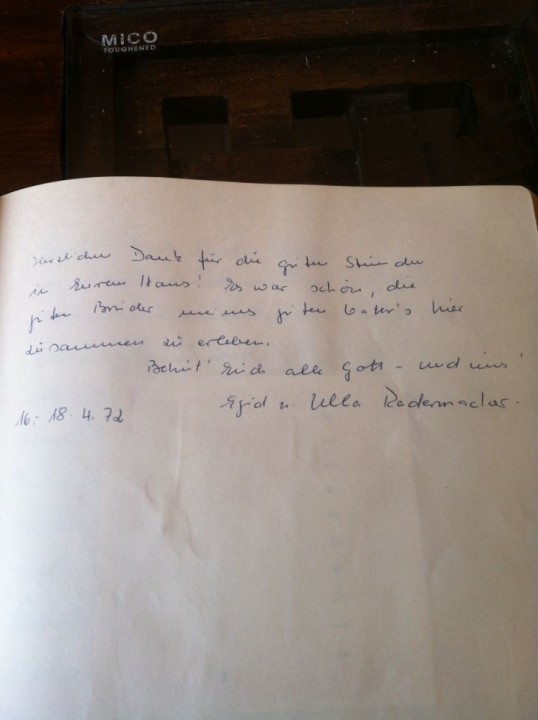 MICO
TOUGHENED
Herzlichen Dank für die guten Stunden
in Eurem Haus! Es war schön, die
guten Brüder meines guten Vater's hier
zusammen zu erleben.
Behüt' Euch alle Gott - und uns!
Egid u. Ulla Radermacher.
16.- 18. 4. 72